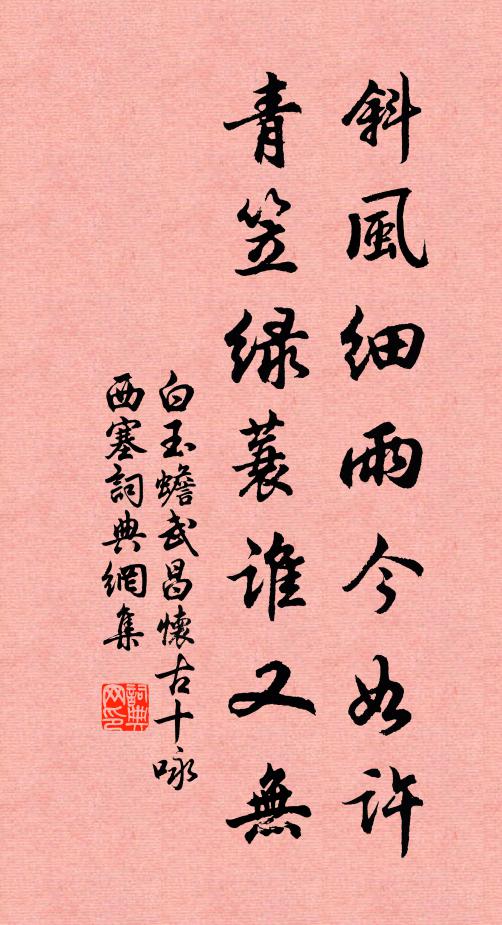 斜風細雨今如許
青笠綠蓑誰又無
白玉蟾武昌懷古十咏
西塞詞典網集
詞典网印